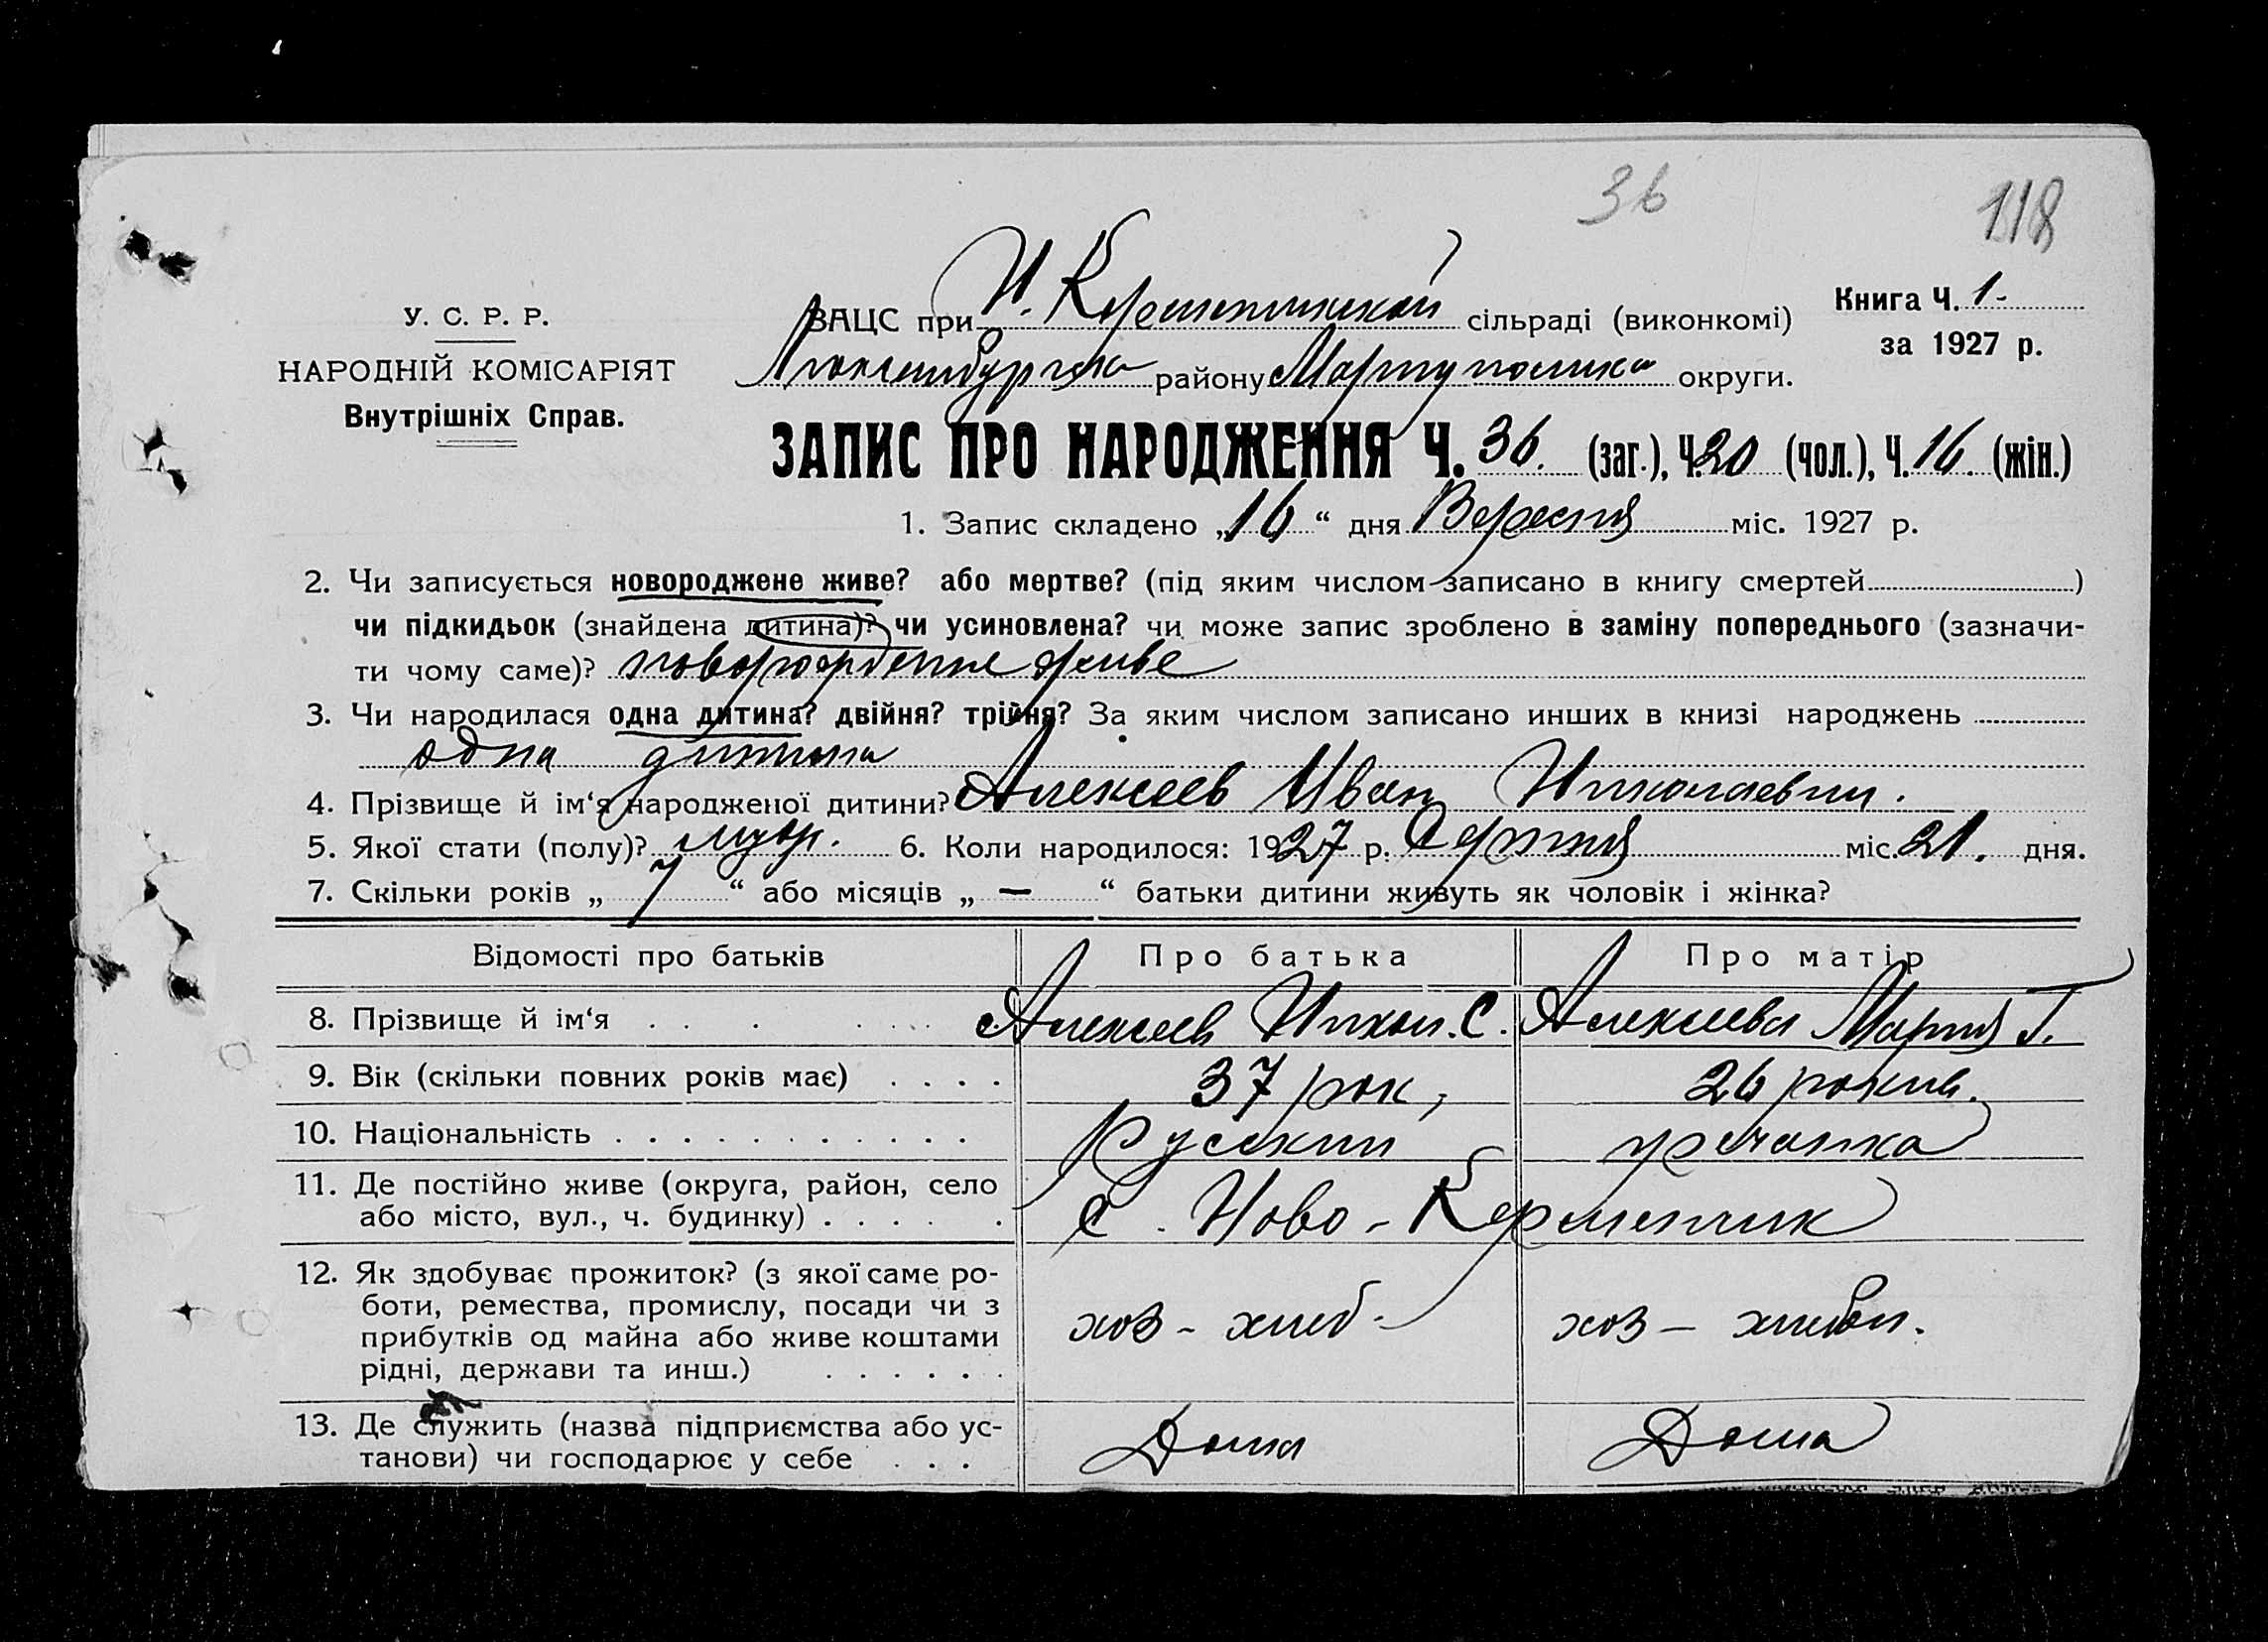 36
118
У. С. Р. Р.
НАРОДНІЙ КОМІСАРІЯТ
Внутрішніх Справ.
ЗАЦС при Н. Керменчикской сільраді (виконкомі)
району Мариупольска округи.
Книга Ч. 1.
за 1927 р.
ЗАПИС ПРО НАРОДЖЕННЯ Ч. 36. (заг.), Ч. 20 (чол.), Ч. 16. (жін.)
1. Запис складено „16“ дня Вересня міс. 1927 р.
2. Чи записується новороджене живе? або мертве? (під яким числом записано в книгу смертей )
чи підкидьок (знайдена дитина)? чи усиновлена? чи може запис зроблено в заміну попереднього (зазначи-
ти чому саме)? новорожденне живе
3. Чи народилася одна дитина? двійня? трійня? За яким числом записано инших в книзі народжень
одна дитина
4. Прізвище й ім‘я народженої дитини? Алексеев Иван Николаевич.
5. Якої стати (полу)? муж. 6. Коли народилося: 1927 р. Серпня міс. 21. дня.
7. Скільки років „ 7 “ або місяців „ — “ батьки дитини живуть як чоловік і жінка?
Відомості про батьків Про батька Про матір
8. Прізвище й ім‘я Алексеев Никол. С. Алексеева Мария Г.
9. Вік (скільки повних років має) 37 рок, 26 рокив.
10. Національність Русский гречанка
11. Де постійно живе (округа, район, село
або місто, вул., ч. будинку) С. Ново-Керменчик
12. Як здобуває прожиток? (з якої саме ро-
боти, ремества, промислу, посади чи з
прибутків од майна або живе коштами
рідні, держави та инш.) хоз - хлеб - хоз —
13. Де служить (назва підприємства або ус-
танови) чи господарює у себе Дома Дома